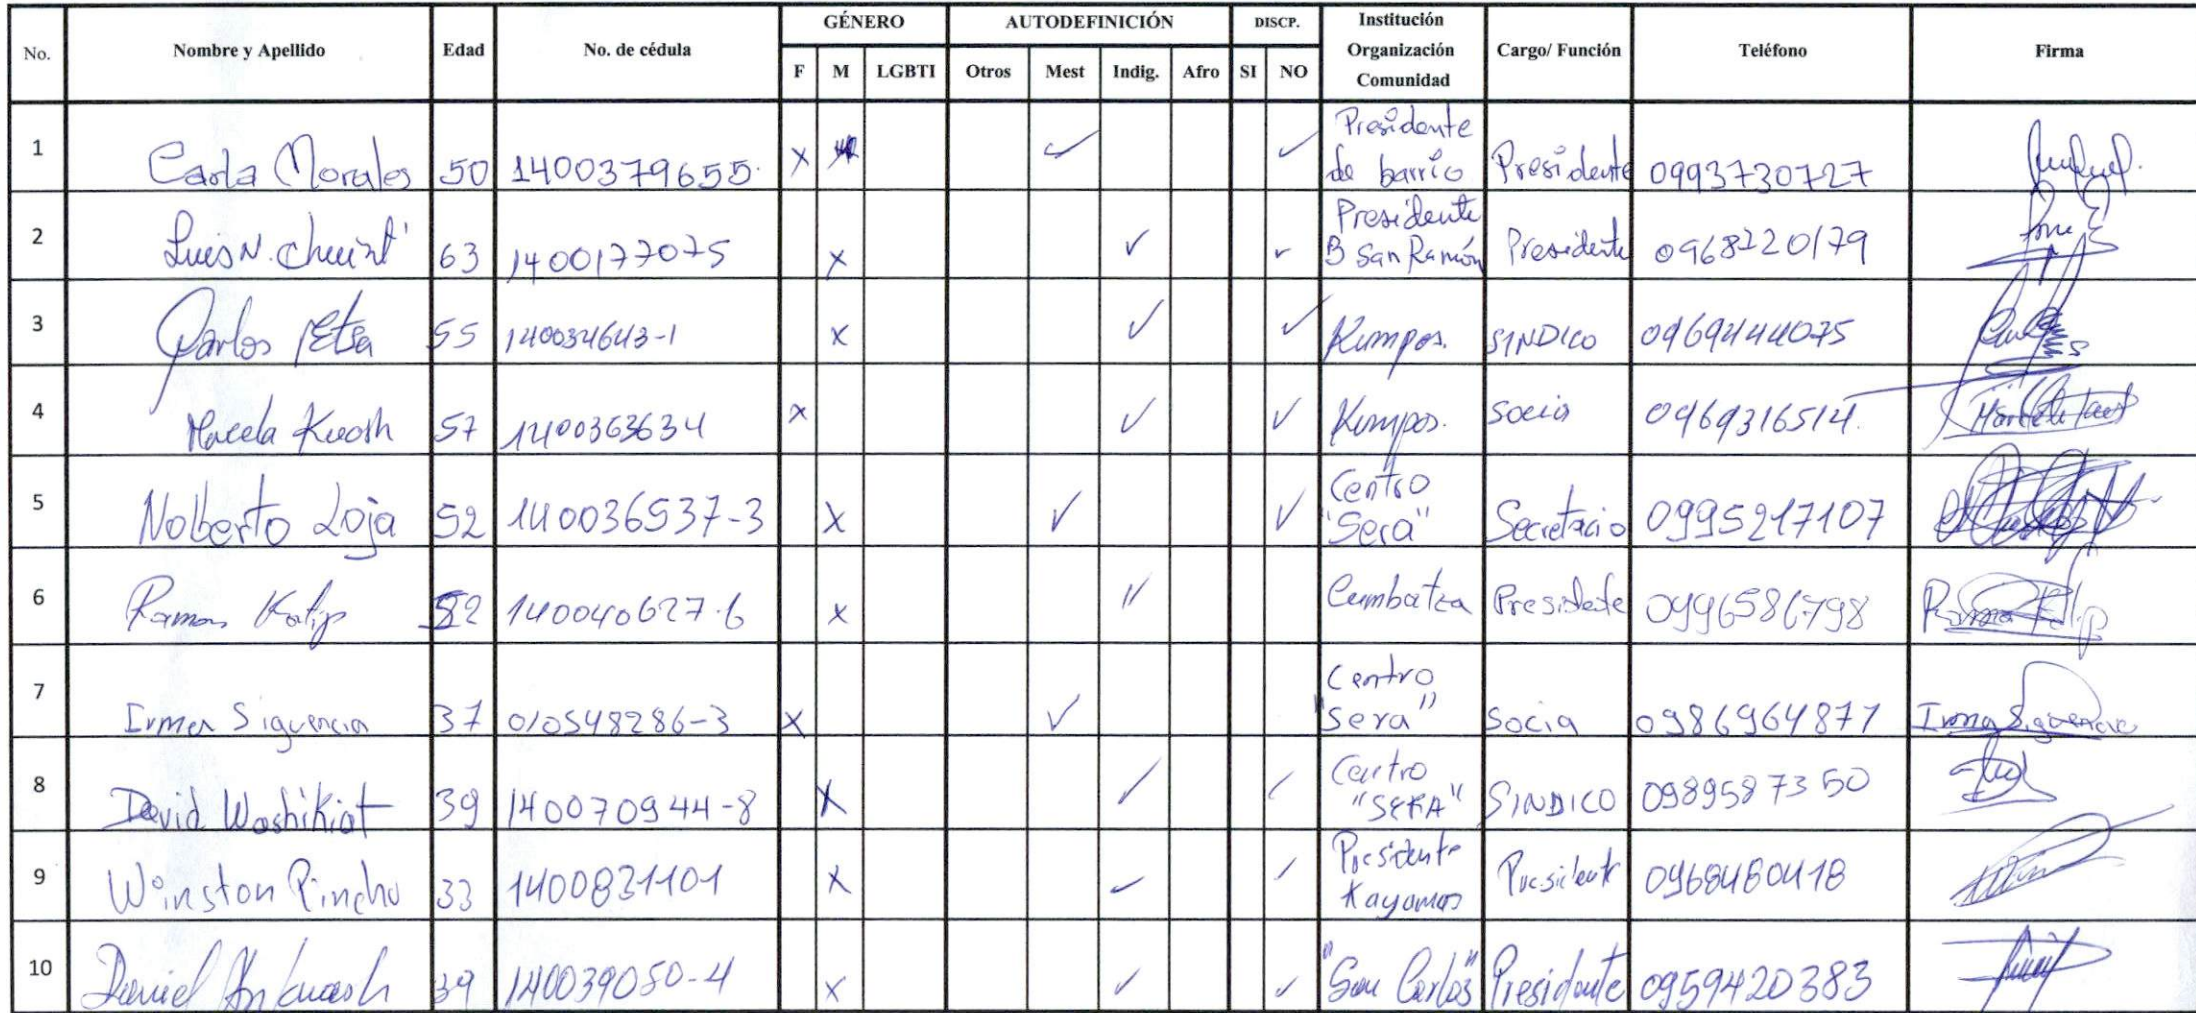 No. Nombre y Apellido Edad No. de cédula GÉNERO AUTODEFINICIÓN DISCP. Institución Organización Comunidad Cargo/ Función Teléfono Firma
F M LGBTI Otros Mest Indig. Afro SI NO
1 Carla Morales 50 1400379655. X ✓ ✓ Presidente de barrio Presidente 0993730727
2 Luis N. 63 1400177075 X ✓ ✓ Presidente B San Ramón Presidente 0968220179
3 Carlos Etsa 55 140034643-1 X ✓ ✓ Kumpas. SINDICO 0969444075
4 57 1400363634 X ✓ ✓ Kumpas. Socia 0969316514.
5 Nolberto Loja 52 140036537-3 X ✓ ✓ Centro "Sera" Secretario 0995217107
6 Ramon Katip 140040627-6 X ✓ Cumbatza Presidente 0996586798 Ramon Katip
7 Irma Siguencia 37 010548286-3 X ✓ Centro "Sera" Socia 0986964871 Irma Siguencia
8 David Washikiat 39 140070944-8 X ✓ ✓ Centro "SERA" SINDICO 0989587350
9 Winston Pinchu 33 1400831101 X ✓ ✓ Presidente Kayamas Presidente 0968480418
10 Daniel Ankuash 39 140039050-4 X ✓ ✓ "San Carlos" Presidente 0959420383